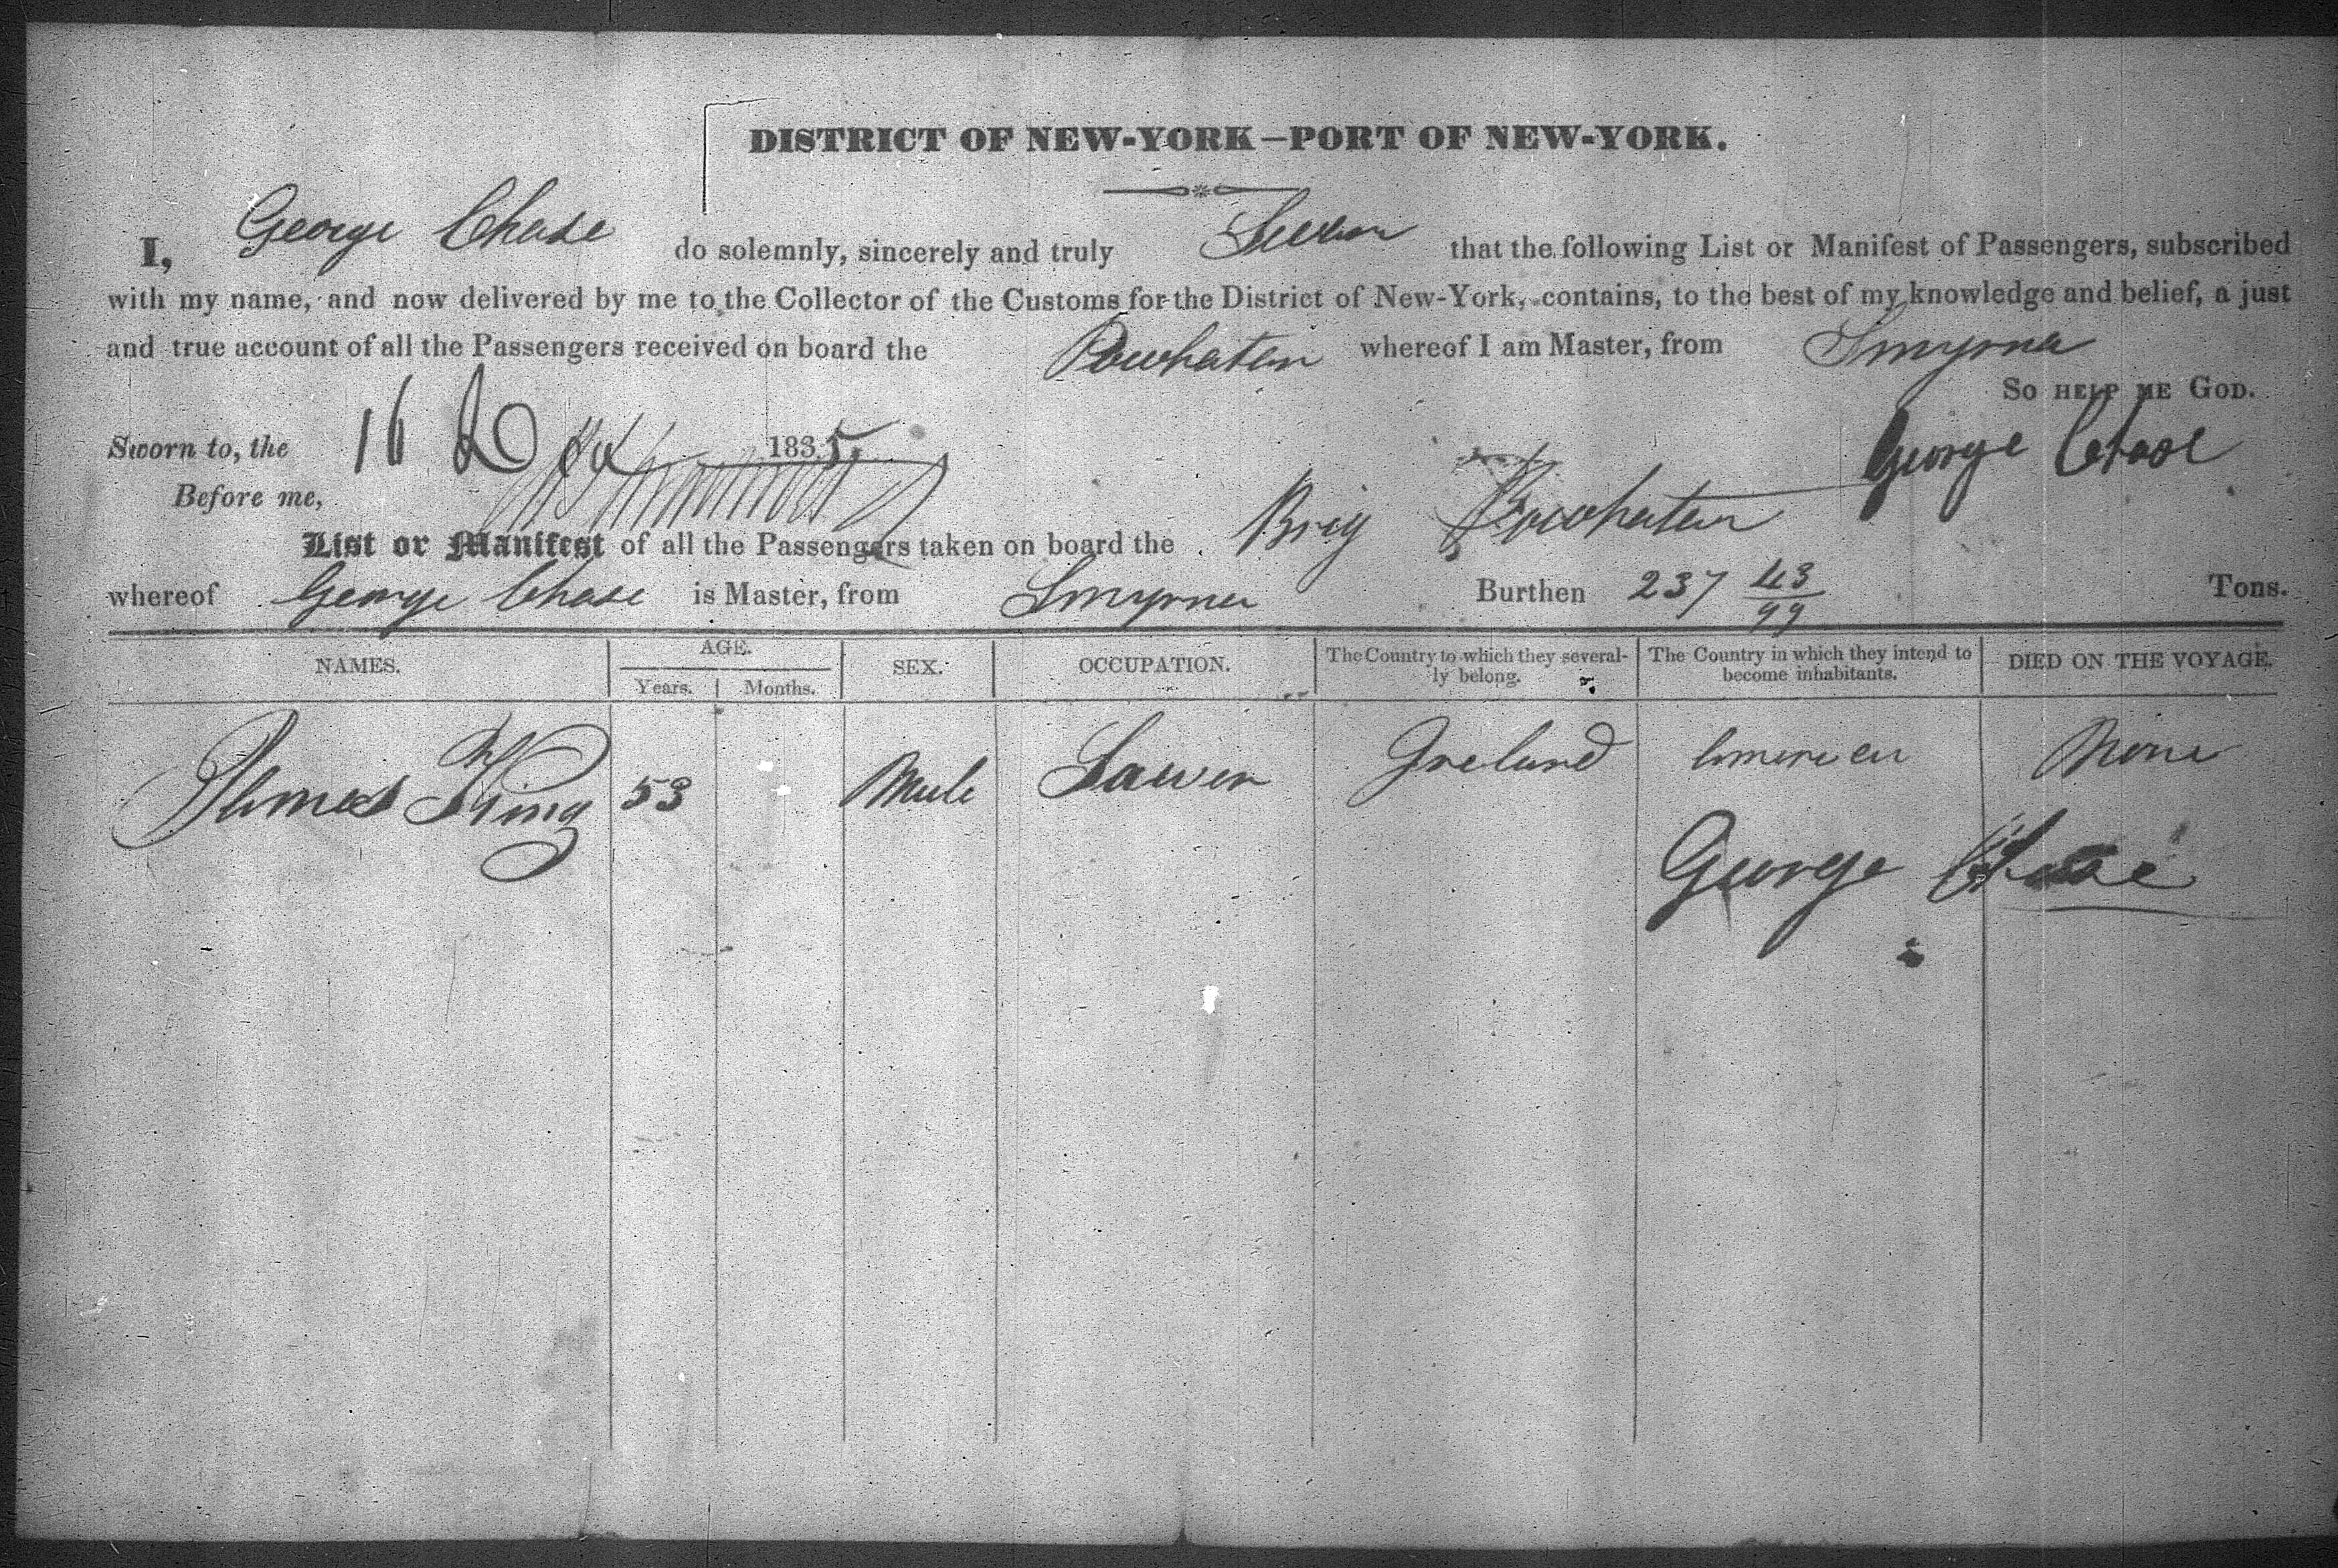 DISTRICT OF NEW-YORK—PORT OF NEW-YORK.
I, George Chase do solemnly, sincerely and truly Swear that the following List or Manifest of Passengers, subscribed
with my name, and now delivered by me to the Collector of the Customs for the District of New-York, contains, to the best of my knowledge and belief, a just
and true account of all the Passengers received on board the Powhatan whereof I am Master, from Smyrna
So HELP ME GOD.
Sworn to, the 16 1835 George Chase
Before me,
List or Manifest of all the Passengers taken on board the Brig Powhatan
whereof George Chase is Master, from Smyrna Burthen 237 43/99 Tons.
NAMES. AGE. Years. Months. SEX. OCCUPATION. The Country to which they severally belong. The Country in which they intend to become inhabitants. DIED ON THE VOYAGE.
King 53 Male Ireland None
George Chase